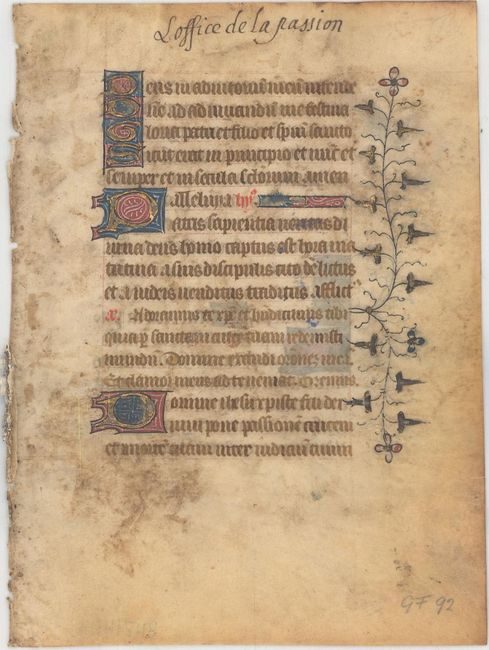 L'office de la passion
Deus in adiutoriū meū intende
Dn̄e ad adiuvandū me festina
Gloria patri et filio et spiritui sancto
Sicut erat in principio et nūc et
semper et in secula sclorum amen
Alleluya
Patris sapientia veritas di
vina deus homo captus est hora ma
tutina a suis discipulis cito delictus
et a iudeis venditus traditus afflict
Adoramus te xp̄e et bn̄dicimus tibi
quia p̄ sanctam crucē tuam redemisti
mundū Domine exaudi orōnez mea
Et clamor meus ad te veniat Oremus
Domine ihesu xpiste fili dei
vivi pone passionē crucem
et mortē tuam inter iudiciū tuum
GF 92